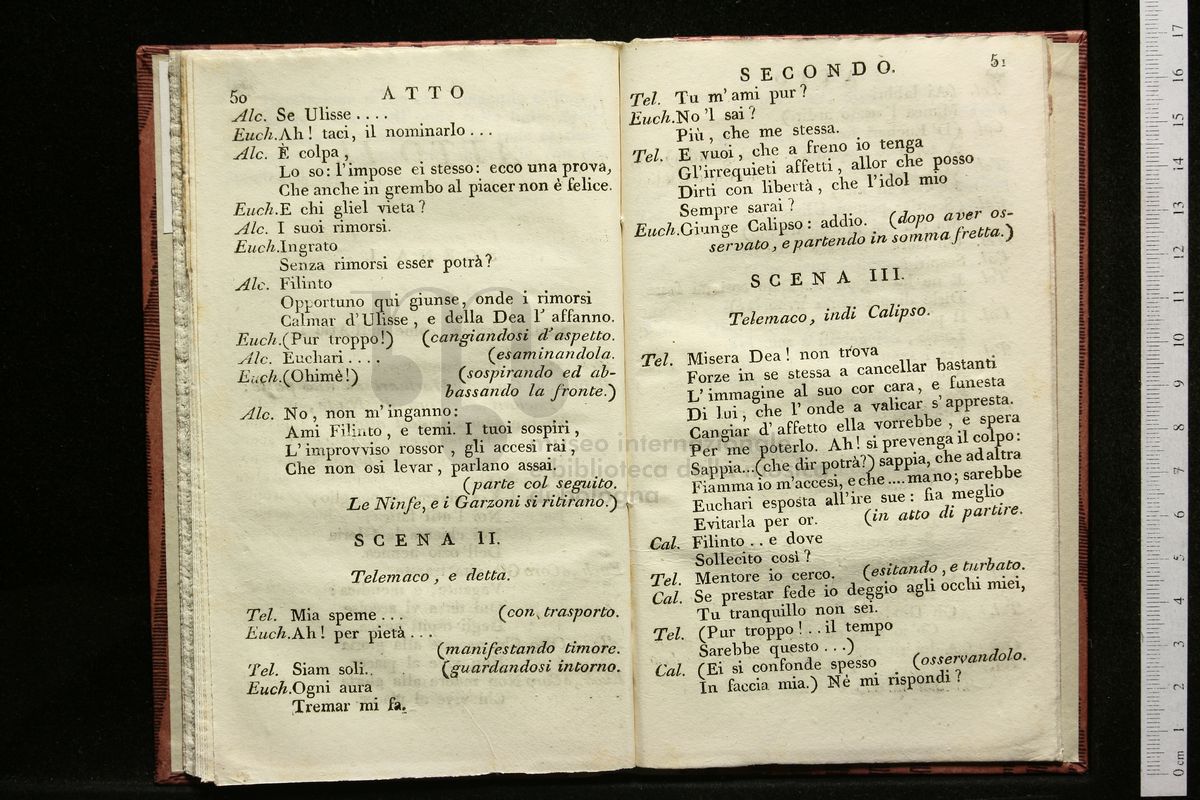 50 ATTO
Alc. Se Ulisse ....
Euch. Ah! taci, il nominarlo ...
Alc. È colpa,
Lo so: l'impose ei stesso: ecco una prova,
Che anche in grembo al piacer non è felice.
Euch. E chi gliel vieta?
Alc. I suoi rimorsi.
Euch. Ingrato
Senza rimorsi esser potrà?
Alc. Filinto
Opportuno qui giunse, onde i rimorsi
Calmar d'Ulisse, e della Dea l'affanno.
Euch. (Pur troppo!) (cangiandosi d'aspetto.
Alc. Euchari .... (esaminandola.
Euch. (Ohimè!) (sospirando ed ab-
bassando la fronte.)
Alc. No, non m'inganno:
Ami Filinto, e temi. I tuoi sospiri,
L'improvviso rossor, gli accesi rai,
Che non osi levar, parlano assai.
(parte col seguito.
Le Ninfe, e i Garzoni si ritirano.)
SCENA II.
Telemaco, e detta.
Tel. Mia speme ... (con trasporto.
Euch. Ah! per pietà ...
(manifestando timore.
Tel. Siam soli.. (guardandosi intorno.
Euch. Ogni aura
Tremar mi fa.
SECONDO. 51
Tel. Tu m'ami pur?
Euch. No 'l sai?
Più, che me stessa.
Tel. E vuoi, che a freno io tenga
Gl'irrequieti affetti, allor che posso
Dirti con libertà, che l'idol mio
Sempre sarai?
Euch. Giunge Calipso: addio. (dopo aver os-
servato, e partendo in somma fretta.)
SCENA III.
Telemaco, indi Calipso.
Tel. Misera Dea! non trova
Forze in se stessa a cancellar bastanti
L'immagine al suo cor cara, e funesta
Di lui, che l'onde a valicar s'appresta.
Cangiar d'affetto ella vorrebbe, e spera
Per me poterlo. Ah! si prevenga il colpo:
Sappia...(che dir potrà?) sappia, che ad altra
Fiamma io m'accesi, e che .... ma no; sarebbe
Euchari esposta all'ire sue: fia meglio
Evitarla per or. (in atto di partire.
Cal. Filinto .. e dove
Sollecito così?
Tel. Mentore io cerco. (esitando, e turbato.
Cal. Se prestar fede io deggio agli occhi miei,
Tu tranquillo non sei.
Tel. (Pur troppo! .. il tempo
Sarebbe questo ...)
Cal. (Ei si confonde spesso (osservandolo.
In faccia mia.) Nè mi rispondi?
museo internazionale
biblioteca della musica
bologna
0 cm 1 2 3 4 5 6 7 8 9 10 11 12 13 14 15 16 17